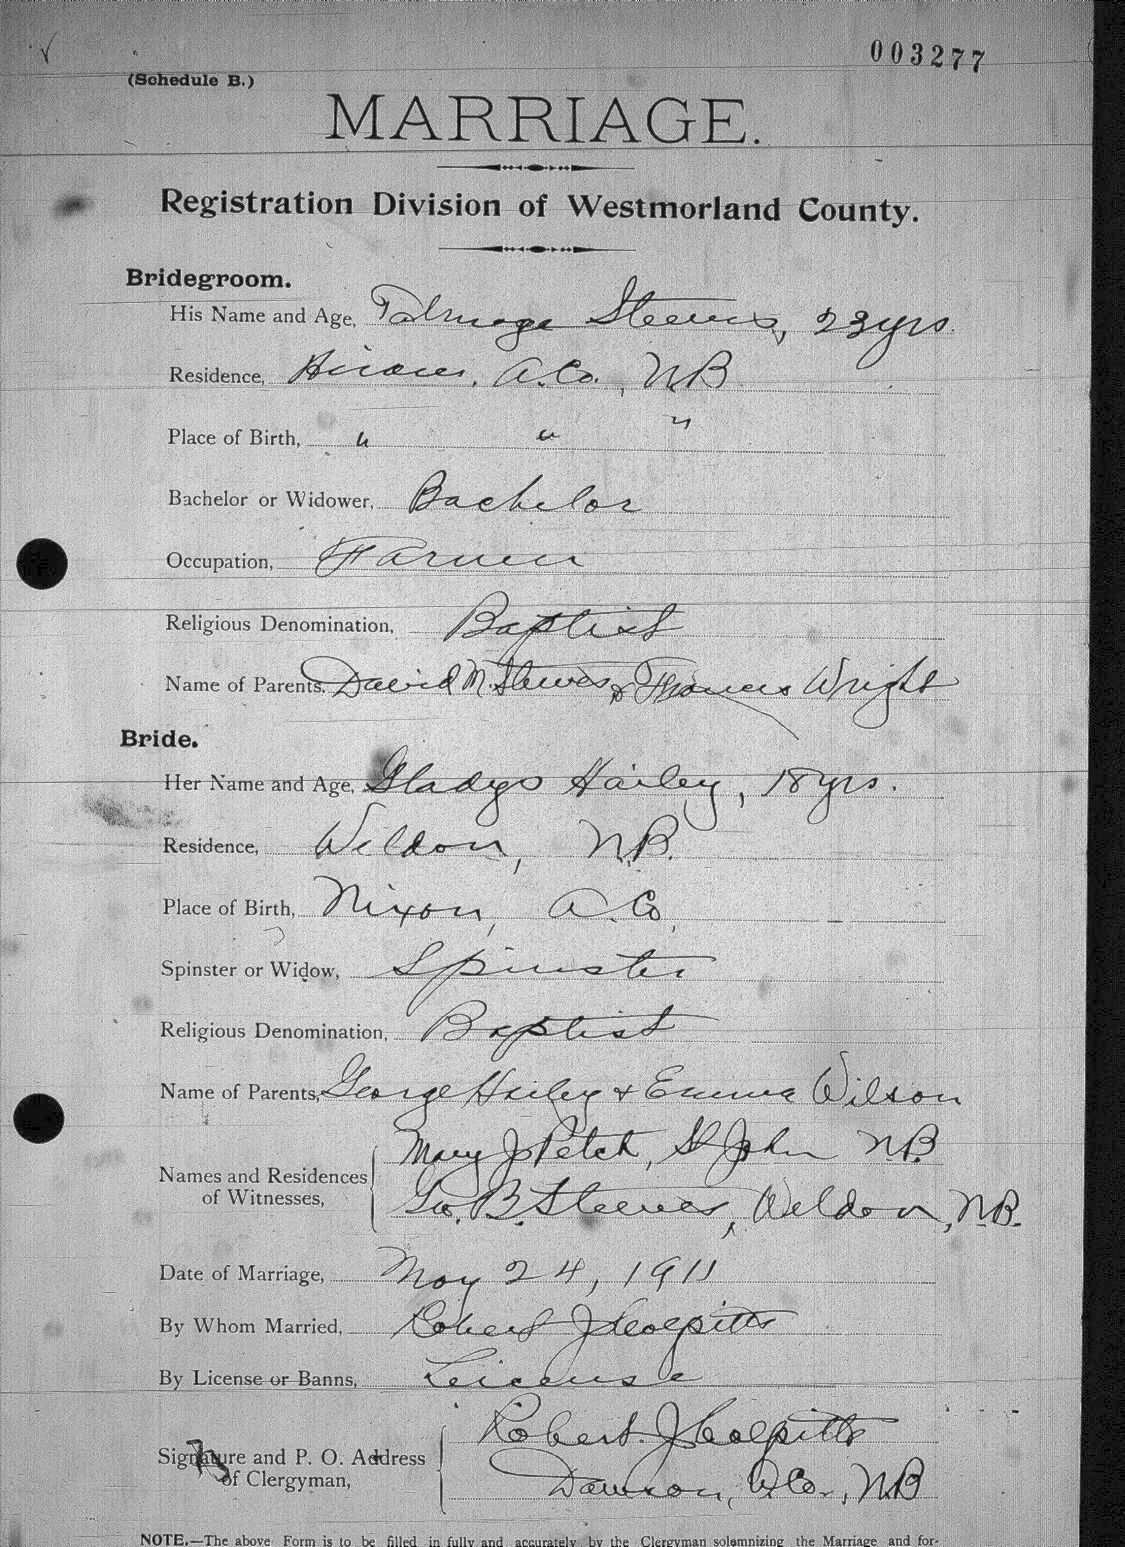 003277
(Schedule B.)
MARRIAGE.
Registration Division of Westmorland County.
Bridegroom.
His Name and Age, Talmage Steeves, 23 yrs.
Residence, A. Co., N.B.
Place of Birth, " " "
Bachelor or Widower, Bachelor
Occupation, Farmer
Religious Denomination, Baptist
Name of Parents. David M. Steeves & Frances Wright
Bride.
Her Name and Age, Gladys Hailey, 18 yrs.
Residence, Weldon, N.B.
Place of Birth, Nixon, A. Co,
Spinster or Widow, Spinster
Religious Denomination, Baptist
Name of Parents, George Hailey + Emma Wilson
Mary J Petch, St John N.B
Names and Residences
of Witnesses,
Geo. B. Steeves, Weldon, N.B.
Date of Marriage, May 24, 1911
By Whom Married, Robert J Colpitts
By License or Banns, License
Robert J Colpitts
Signature and P. O. Address
of Clergyman,
Dawson, A. Co., NB
NOTE.—The above Form is to be filled in fully and accurately by the Clergyman solemnizing the Marriage and for-